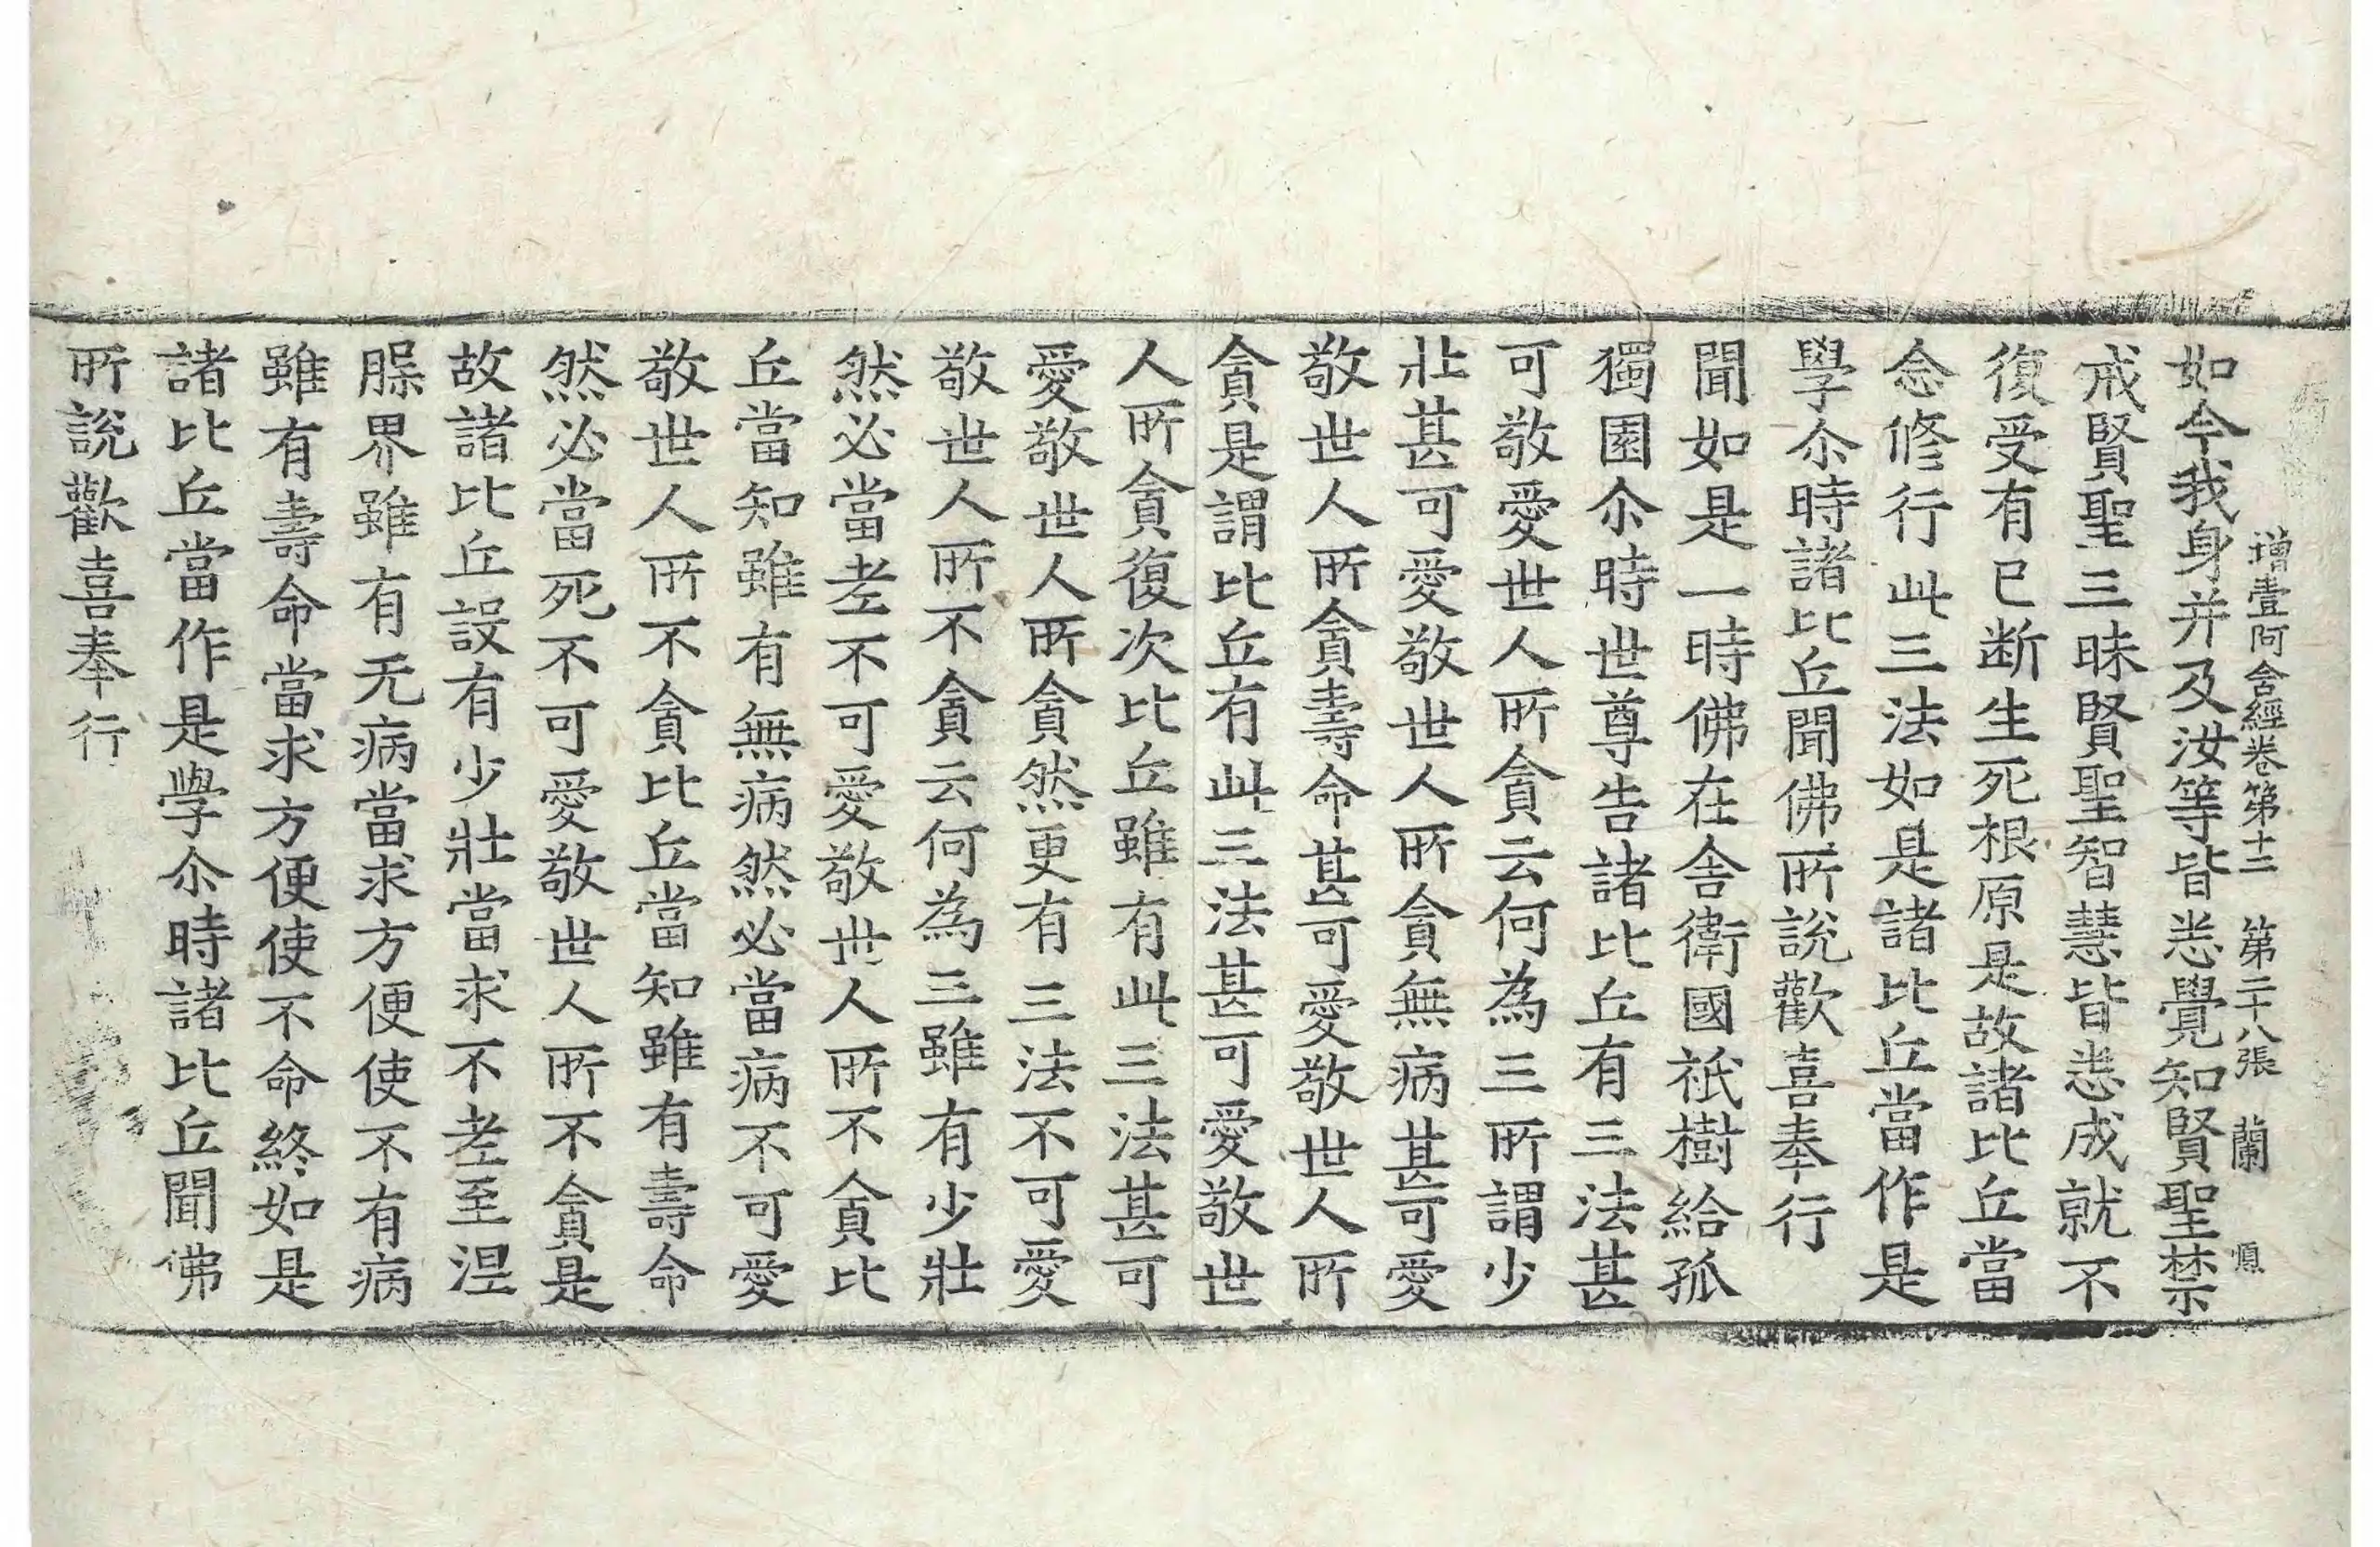 增壹阿含經卷第十二　第二十八張　蘭
如今我身并及汝等皆悉覺知賢聖禁
戒賢聖三昧賢聖智慧皆悉成就不
復受有已断生死根原是故諸比丘當
念修行此三法如是諸比丘當作是
學尒時諸比丘聞佛所說歡喜奉行
聞如是一時佛在舍衛國祇樹給孤
獨園尒時世尊告諸比丘有三法甚
可敬愛世人所貪云何為三所謂少
壯甚可愛敬世人所貪無病甚可愛
敬世人所貪壽命甚可愛敬世人所
貪是謂比丘有此三法甚可愛敬世
人所貪復次比丘雖有此三法甚可
愛敬世人所貪然更有三法不可愛
敬世人所不貪云何為三雖有少壯
然必當老不可愛敬世人所不貪比
丘當知雖有無病然必當病不可愛
敬世人所不貪比丘當知雖有壽命
然必當死不可愛敬世人所不貪是
故諸比丘設有少壯當求不老至涅
縣界雖有无病當求方便使不有病
雖有壽命當求方便使不命終如是
諸比丘當作是學尒時諸比丘聞佛
所說歡喜奉行